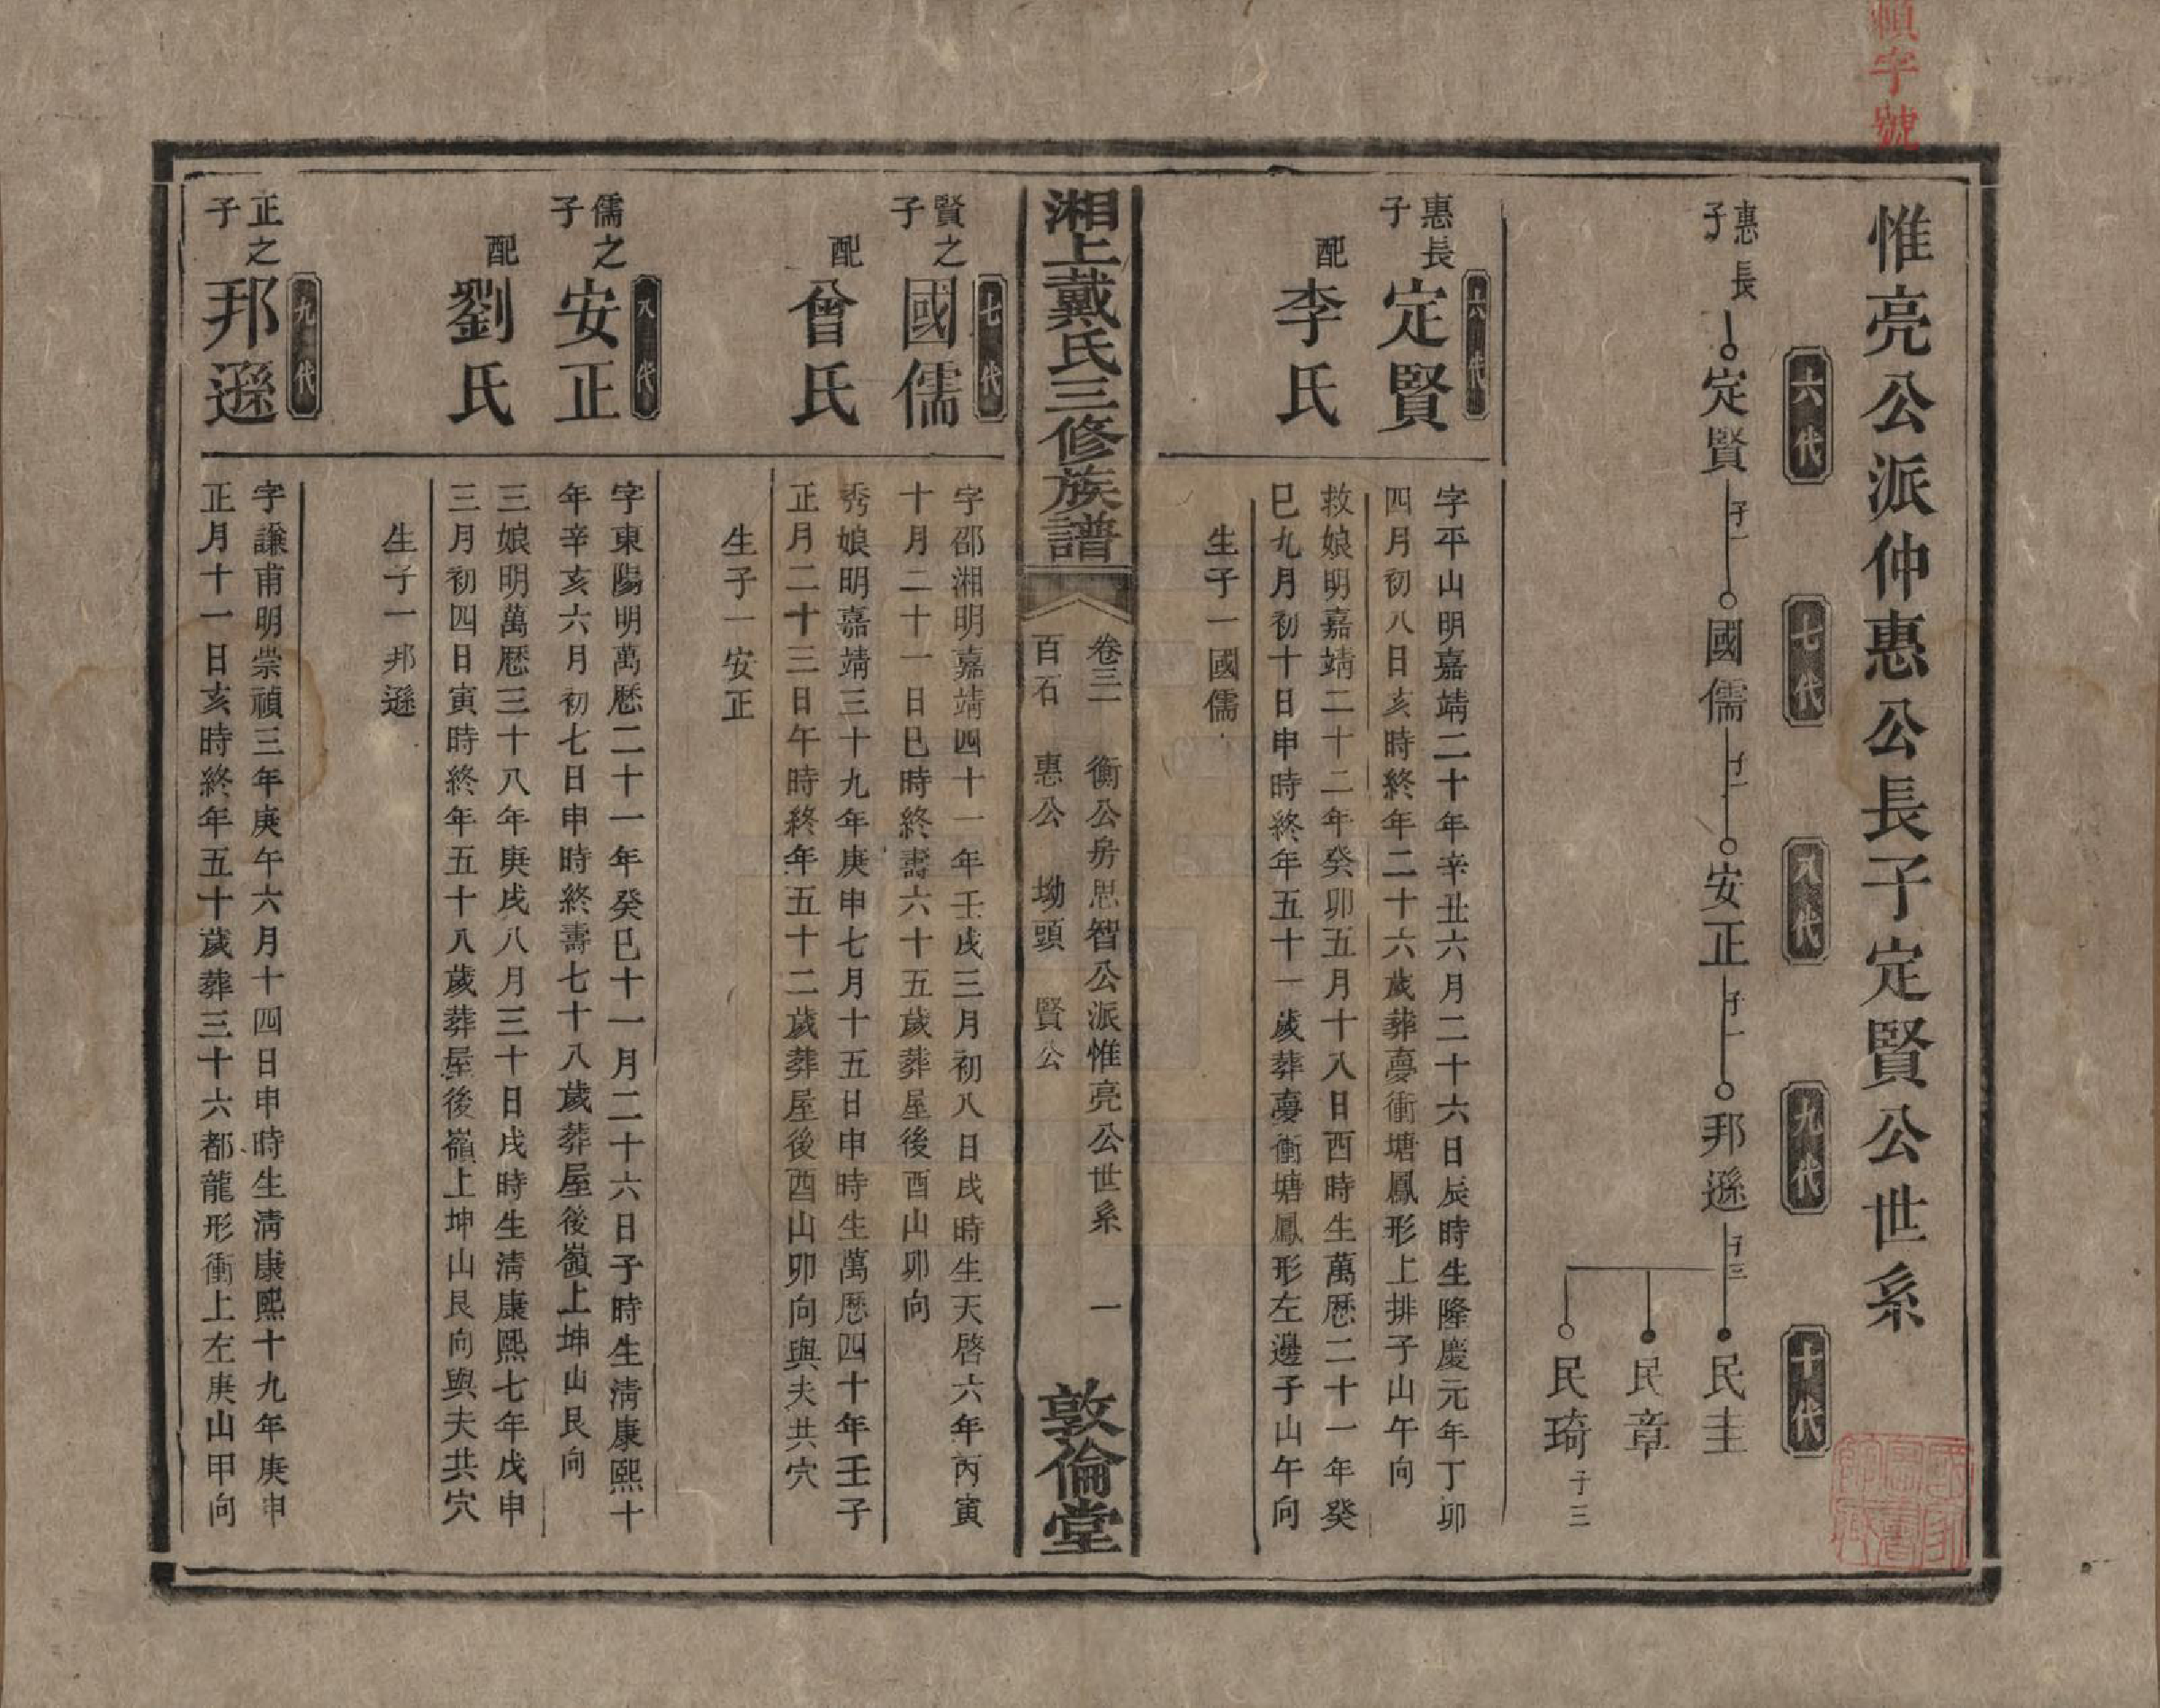 字號
惟亮公派仲惠公長子定賢公世系
六代
七代
八代
九代
十代
惠長子
定賢
子一
國儒
子一
安正
子一
邦遜
子三
民圭
民章
民琦
子三
六代
惠長子
定賢
字平山明嘉靖二十年辛丑六月二十六日辰時生隆慶元年丁卯
四月初八日亥時終年二十六歲葬夢衝塘鳳形上排子山午向
配
李氏
救娘明嘉靖二十二年癸卯五月十八日酉時生萬歷二十一年癸
巳九月初十日申時終年五十一歲葬夢衝塘鳳形左邊子山午向
生子一國儒
湘上戴氏三修族譜
卷三一 衡公房思智公派惟亮公世系 一
百石 惠公 坳頭 賢公
敦倫堂
七代
賢之子
國儒
字邵湘明嘉靖四十一年壬戌三月初八日戌時生天啓六年丙寅
十月二十一日巳時終壽六十五歲葬屋後酉山卯向
配
曾氏
秀娘明嘉靖三十九年庚申七月十五日申時生萬歷四十年壬子
正月二十三日午時終年五十二歲葬屋後酉山卯向與夫共穴
生子一安正
八代
儒之子
安正
字東陽明萬歷二十一年癸巳十一月二十六日子時生清康熙十
年辛亥六月初七日申時終壽七十八歲葬屋後嶺上坤山艮向
配
劉氏
三娘明萬歷三十八年庚戌八月三十日戌時生清康熙七年戊申
三月初四日寅時終年五十八歲葬屋後嶺上坤山艮向與夫共穴
生子一邦遜
九代
正之子
邦遜
字謙甫明崇禎三年庚午六月十四日申時生清康熙十九年庚申
正月十一日亥時終年五十歲葬三十六都龍形衝上左庚山甲向